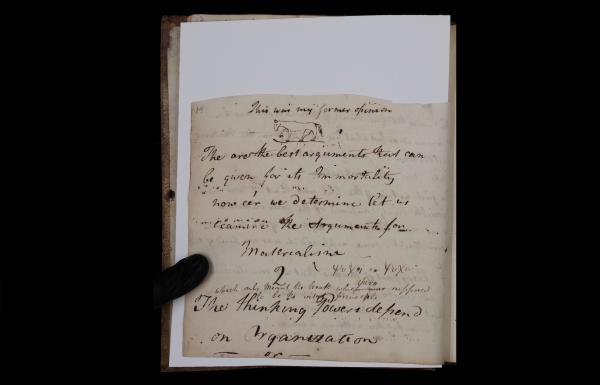 This was my former opinion
The are the best arguments that can
be given for its Immortality
now e'er we determine let us
examine the Arguments for
Materialism
2
which only meant the breath which was supposed
to be the vital principle
The thinking Powers depend
on Organization
or